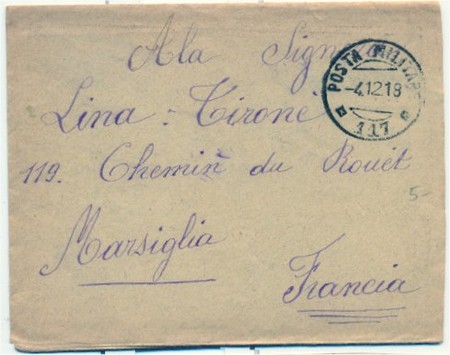 Ala Signo
Lina = Tironé
119. Chemin du Rouét
Marsiglia
Francia
POSTA MILITARE
-4.12.18
117
5-